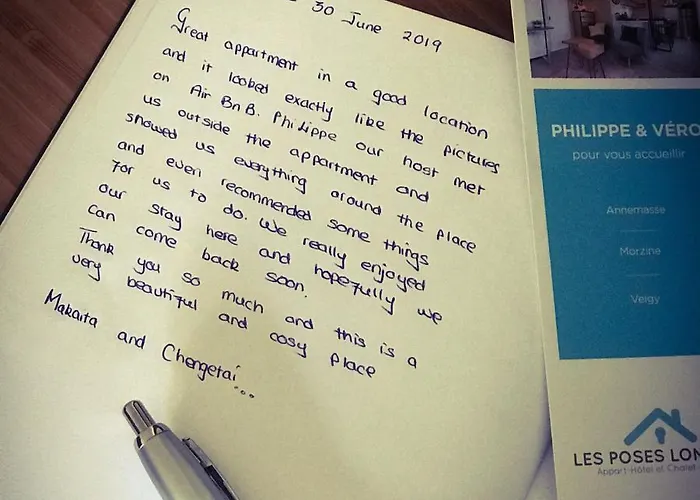 30 June 2019
Great appartment in a good location
and it looked exactly like the pictures
on Air BnB. Philippe our host met
us outside the appartment and
showed us everything around the place
and even recommended some things
for us to do. We really enjoyed
our stay here and hopefully we
can come back soon.
Thank you so much and this is a
very beautiful and cosy place
Makaita and Chengetai...
PHILIPPE & VÉRO
pour vous accueillir
Annemasse
Morzine
Veigy
LES POSES LON
Appart-Hôtel et Chalet